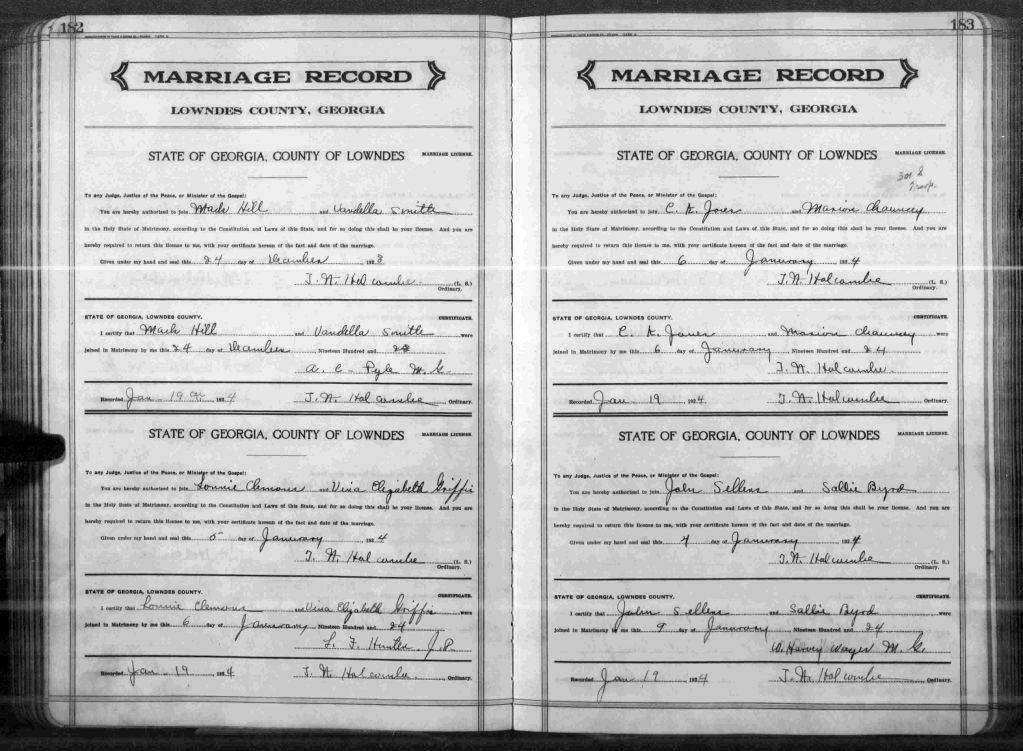 182
MARRIAGE RECORD
LOWNDES COUNTY, GEORGIA
STATE OF GEORGIA, COUNTY OF LOWNDES MARRIAGE LICENSE.
To any Judge, Justice of the Peace, or Minister of the Gospel:
You are hereby authorized to join Mack Hill and Vandella Smith
in the Holy State of Matrimony, according to the Constitution and Laws of this State, and for so doing this shall be your license. And you are
hereby required to return this license to me, with your certificate hereon of the fact and date of the marriage.
Given under my hand and seal this 24 day of December 1923
T. N. Holcombe (L. S.)
Ordinary.
STATE OF GEORGIA, LOWNDES COUNTY. CERTIFICATE.
I certify that Mack Hill and Vandella Smith were
joined in Matrimony by me this 24 day of December Nineteen Hundred and 23
A. C. Pyle M. G.
Recorded Jan 19 1924 T. N. Holcombe Ordinary.
STATE OF GEORGIA, COUNTY OF LOWNDES MARRIAGE LICENSE.
To any Judge, Justice of the Peace, or Minister of the Gospel:
You are hereby authorized to join Lonnie Clemons and Vina Elizabeth Griffis
in the Holy State of Matrimony, according to the Constitution and Laws of this State, and for so doing this shall be your license. And you are
hereby required to return this license to me, with your certificate hereon of the fact and date of the marriage.
Given under my hand and seal this 5 day of Janurary 1924
T. N. Holcombe (L. S.)
Ordinary.
STATE OF GEORGIA, LOWNDES COUNTY. CERTIFICATE.
I certify that Lonnie Clemons and Vina Elizabeth Griffis were
joined in Matrimony by me this 6 day of Janurary Nineteen Hundred and 24
L. F. Hunter J. P.
Recorded Jan 19 1924 T. N. Holcombe Ordinary.
183
MARRIAGE RECORD
LOWNDES COUNTY, GEORGIA
STATE OF GEORGIA, COUNTY OF LOWNDES MARRIAGE LICENSE.
To any Judge, Justice of the Peace, or Minister of the Gospel:
You are hereby authorized to join C. K. Jones and Marion Chauncey
in the Holy State of Matrimony, according to the Constitution and Laws of this State, and for so doing this shall be your license. And you are
hereby required to return this license to me, with your certificate hereon of the fact and date of the marriage.
Given under my hand and seal this 6 day of Janurary 1924
T. N. Holcombe (L. S.)
Ordinary.
STATE OF GEORGIA, LOWNDES COUNTY. CERTIFICATE.
I certify that C. K. Jones and Marion Chauncey were
joined in Matrimony by me this 6 day of Janurary Nineteen Hundred and 24
T. N. Holcombe
Recorded Jan 19 1924 T. N. Holcombe Ordinary.
STATE OF GEORGIA, COUNTY OF LOWNDES MARRIAGE LICENSE.
To any Judge, Justice of the Peace, or Minister of the Gospel:
You are hereby authorized to join John Sellers and Sallie Byrd
in the Holy State of Matrimony, according to the Constitution and Laws of this State, and for so doing this shall be your license. And you are
hereby required to return this license to me, with your certificate hereon of the fact and date of the marriage.
Given under my hand and seal this 4 day of Janurary 1924
T. N. Holcombe (L. S.)
Ordinary.
STATE OF GEORGIA, LOWNDES COUNTY. CERTIFICATE.
I certify that John Sellers and Sallie Byrd were
joined in Matrimony by me this 9 day of Janurary Nineteen Hundred and 24
W. Harvey Wages M. G.
Recorded Jan 19 1924 T. N. Holcombe Ordinary.